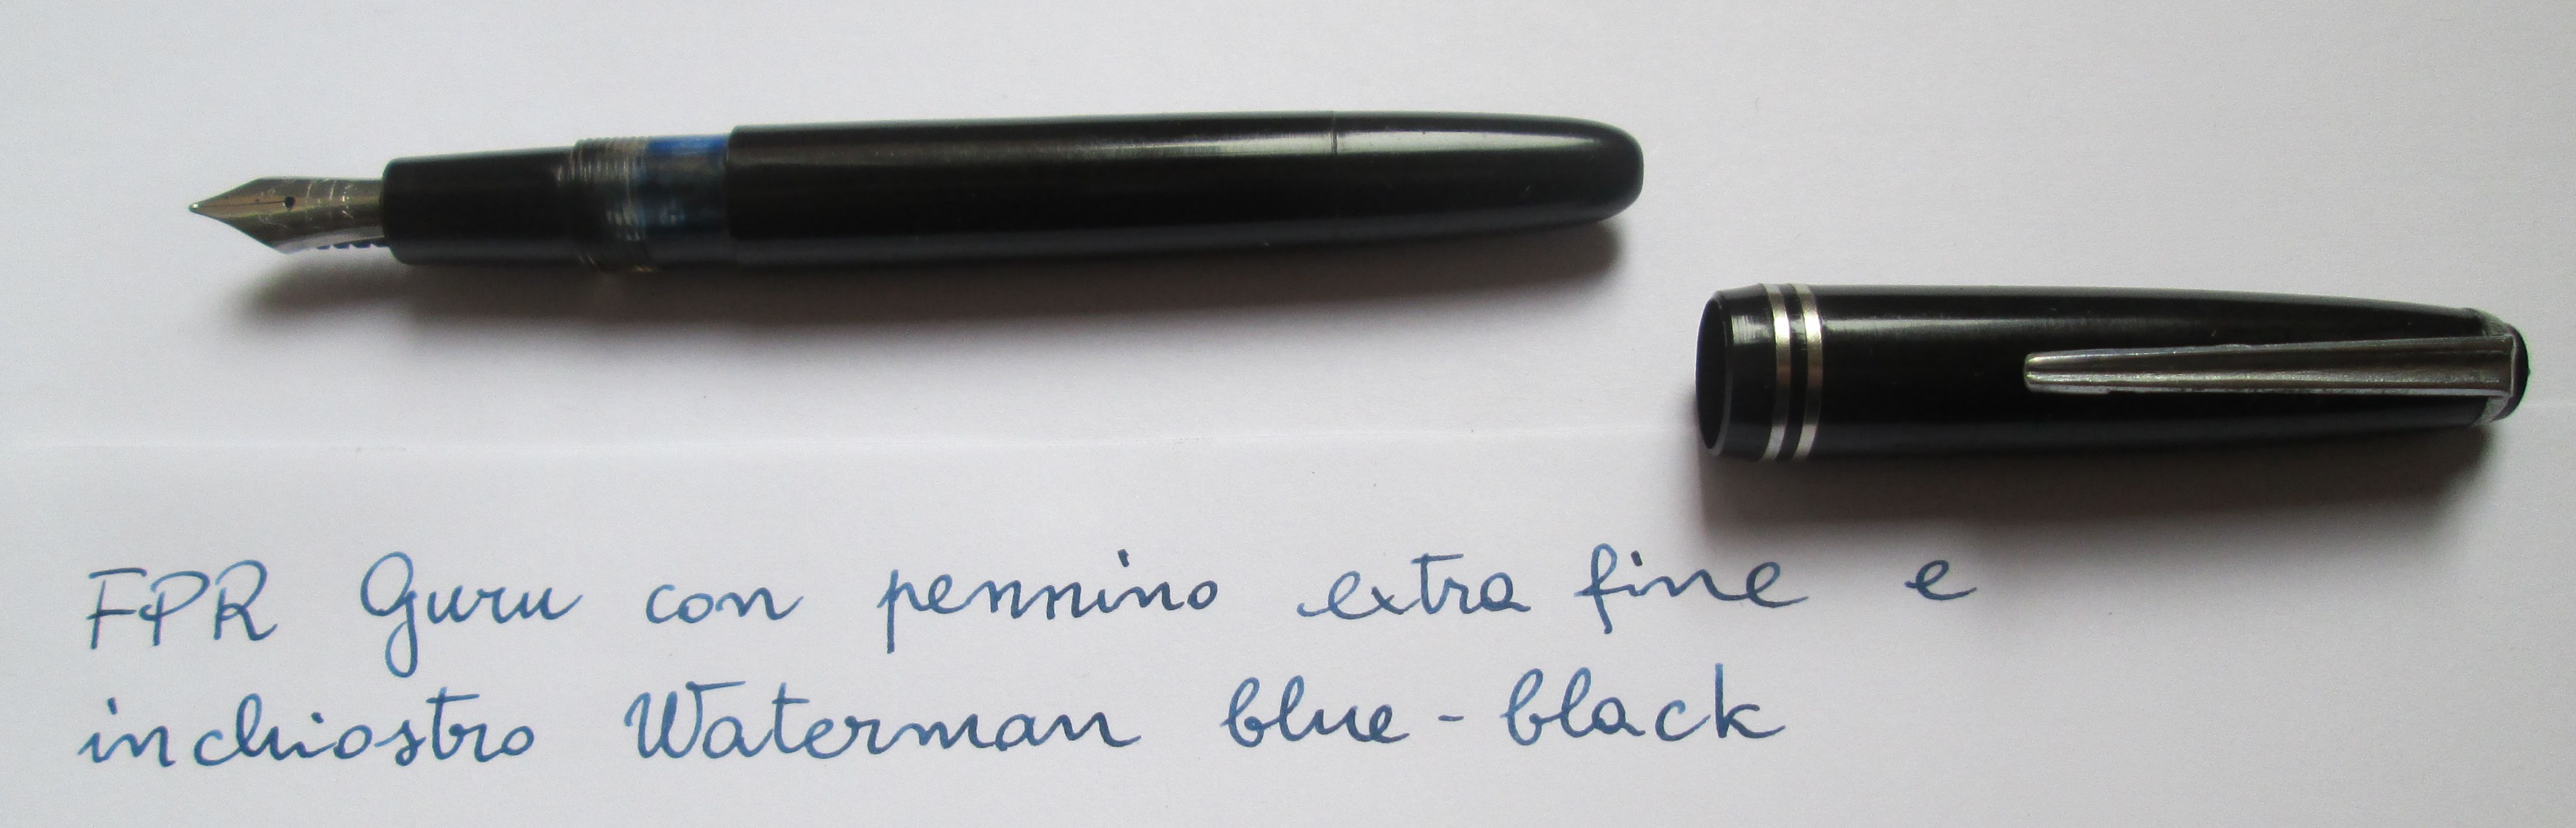 FPR Guru con pennino extra fine e
inchiostro Waterman blue-black